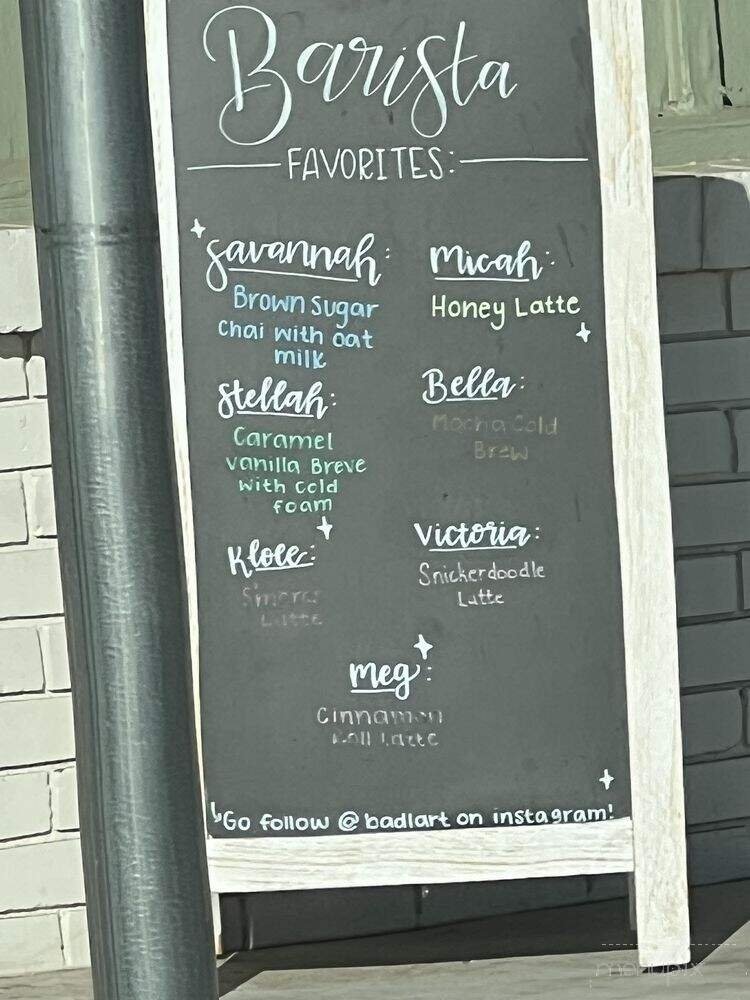 Barista
FAVORITES:
Savannah:
Brown Sugar
Chai with oat
milk
Micah:
Honey Latte
Stellah:
Caramel
Vanilla Breve
with cold
foam
Bella:
Mocha Cold
Brew
Kloee:
S'mores
Latte
Victoria:
Snickerdoodle
Latte
meg:
Cinnamon
Roll Latte
Go follow @badlart on instagram!
menupix